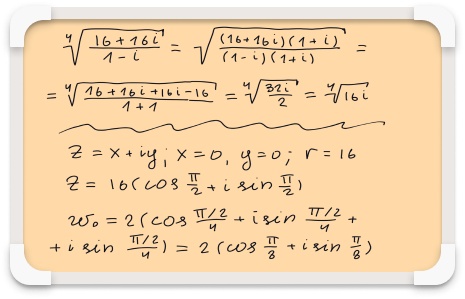 ⁴√((16+16i)/(1-i)) = √(((16+16i)(1+i))/((1-i)(1+i))) =
= ⁴√((16+16i+16i-16)/(1+1)) = ⁴√(32i/2) = ⁴√16i
z = x+iy; x=0, y=0; r=16
z = 16(cos π/2 + i sin π/2)
w₀ = 2(cos (π/2)/4 + i sin (π/2)/4 +
+ i sin (π/2)/4) = 2(cos π/8 + i sin π/8)